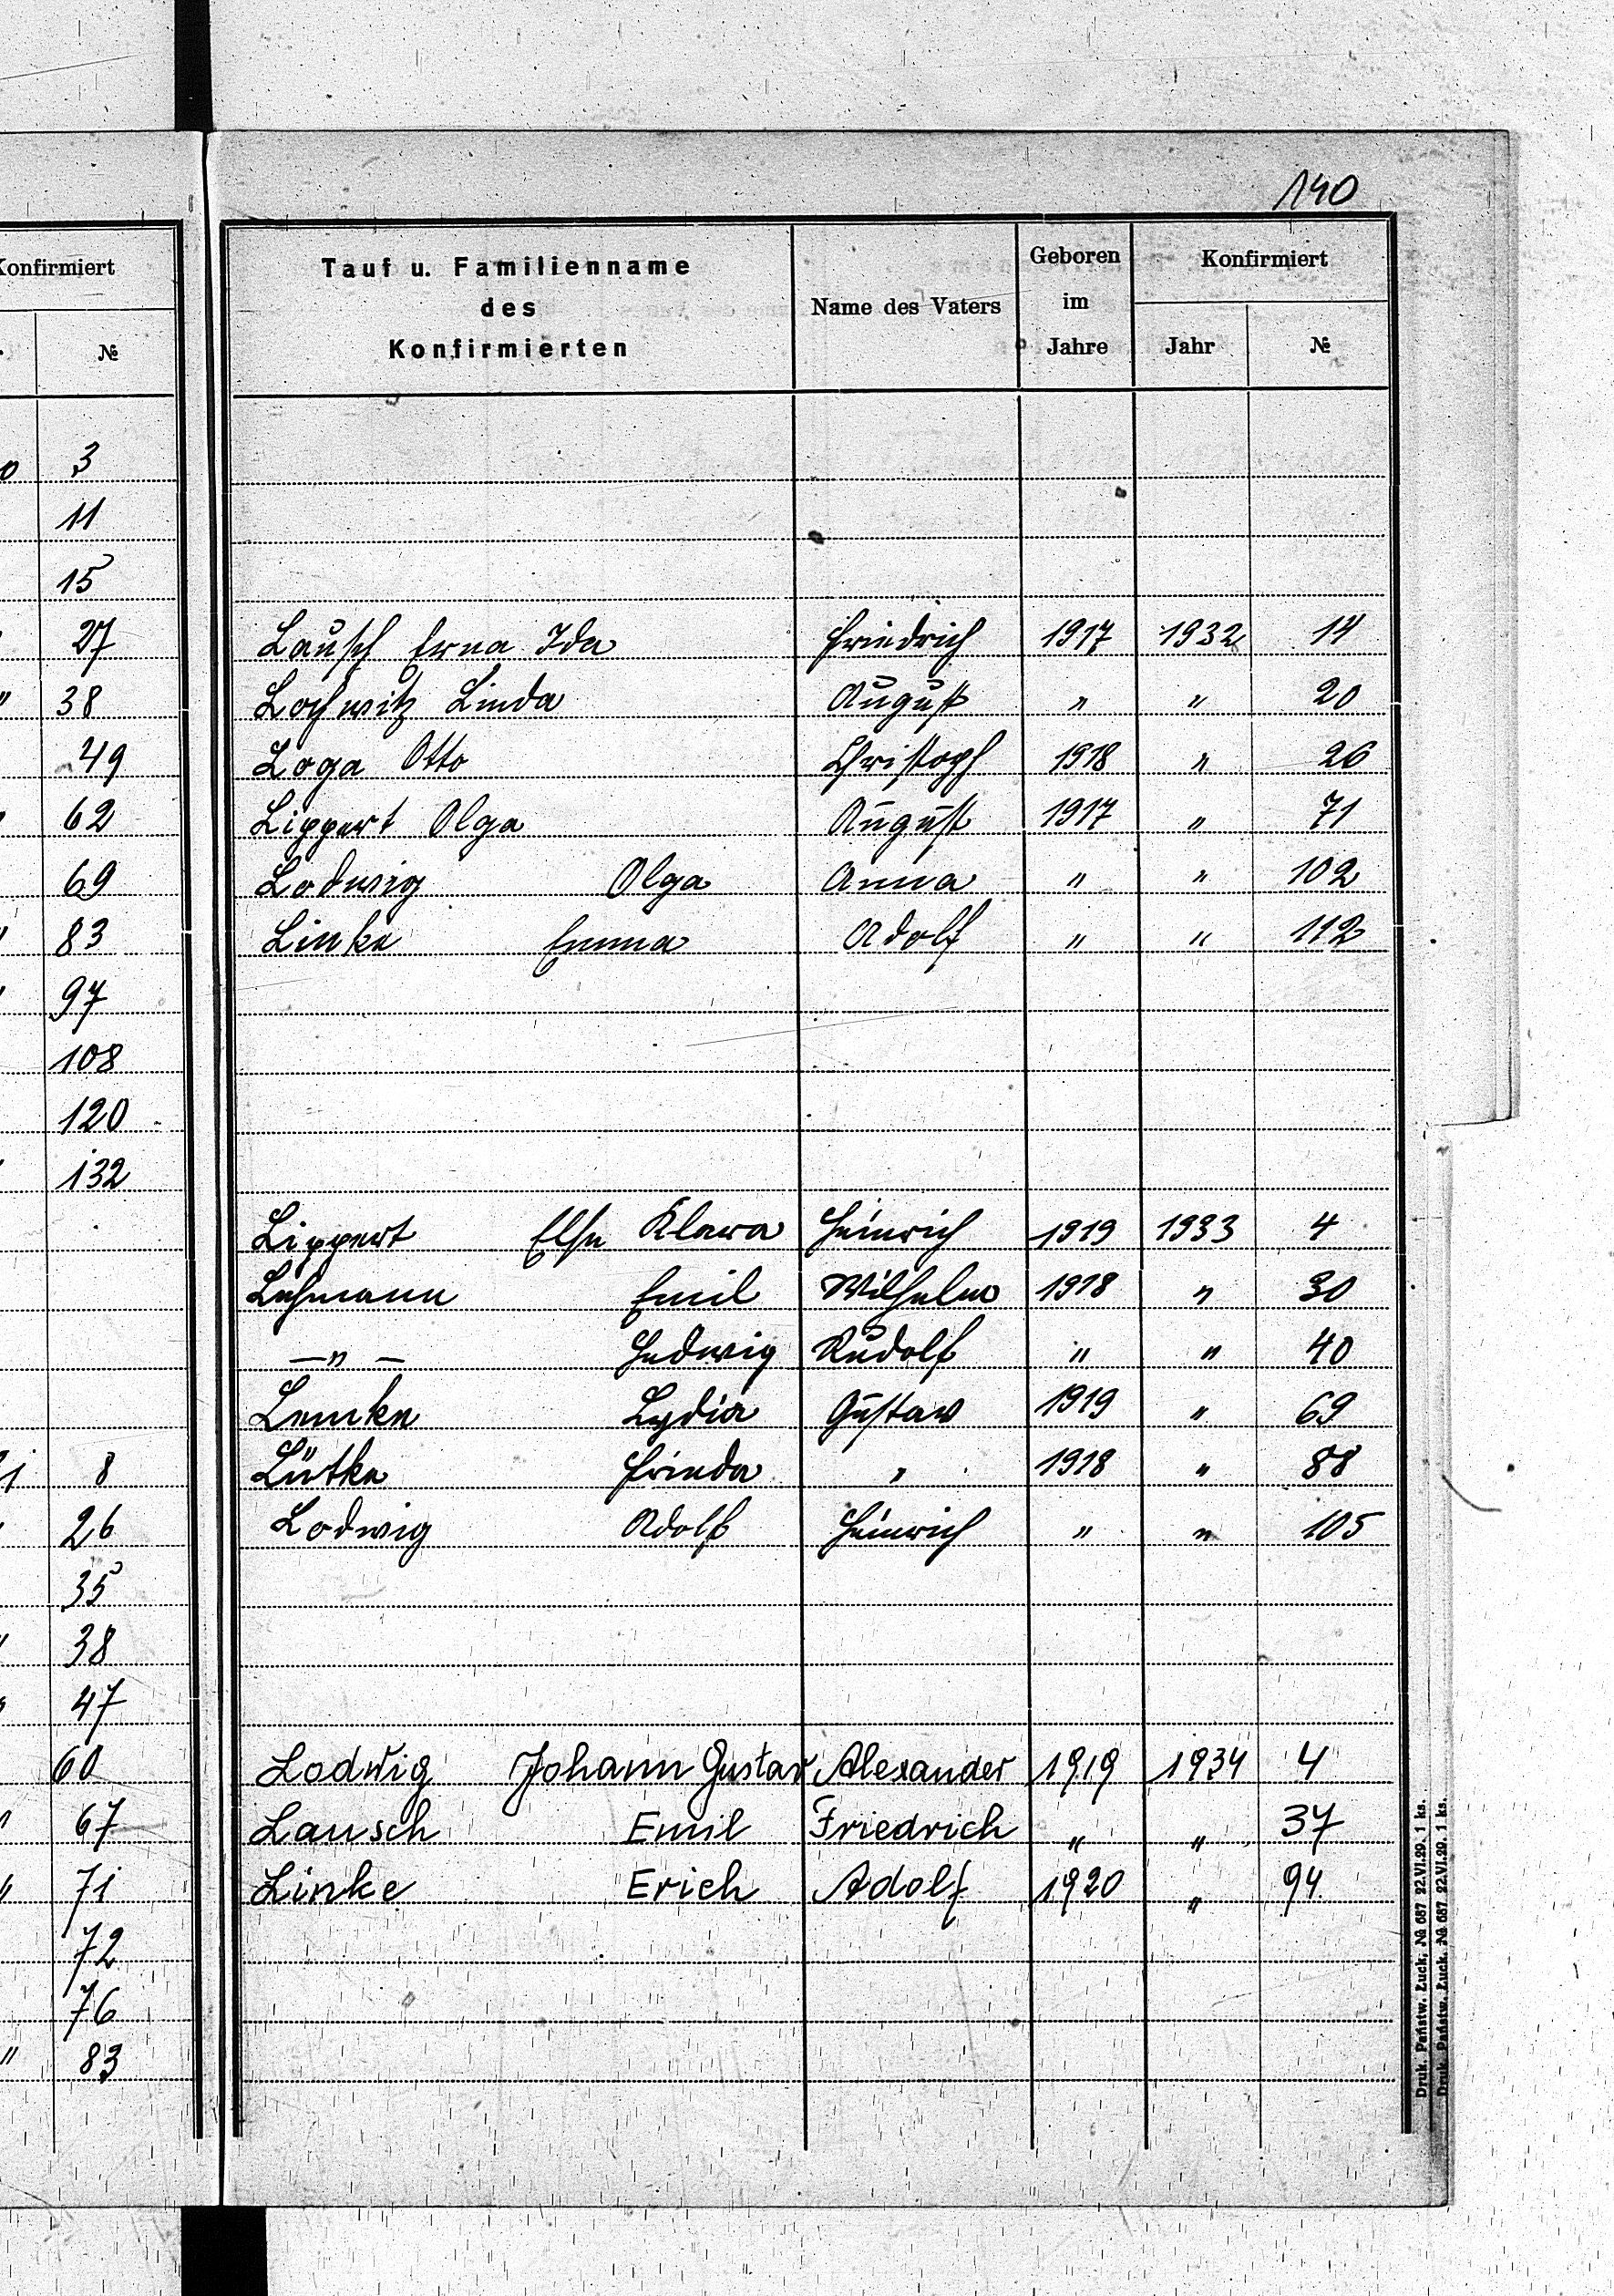 140
Konfirmiert
№
3
11
15
27
" 38
49
62
69
" 83
97
108
120
132
8
26
35
38
47
60
67
" 71
72
76
" 83
Tauf u. Familienname
des
Konfirmierten
Name des Vaters
Geboren
im
Jahre
Konfirmiert
Jahr
№
Lausch Erna Ida Friedrich 1917 1932 14
Lochwitz Linda August " " 20
Loga Otto Christoph 1918 " 26
Lippert Olga August 1917 " 71
Lodwig Olga Anna " " 102
Linke Emma Adolf " " 112
Lippert Else Klara Heinrich 1919 1933 4
Lehmann Emil Wilhelm 1918 " 30
—"— Hedwig Rudolf " " 40
Lemke Lydia Gustav 1919 " 69
Lütke Frieda " 1918 " 88
Lodwig Adolf Heinrich " " 105
Lodwig Johann Gustav Alexander 1919 1934 4
Lausch Emil Friedrich " " 37
Linke Erich Adolf 1920 " 94
Druk. Państw. Łuck. № 687 22.VI.29. 1 ks.
Druk. Państw. Łuck. № 687 22.VI.29. 1 ks.